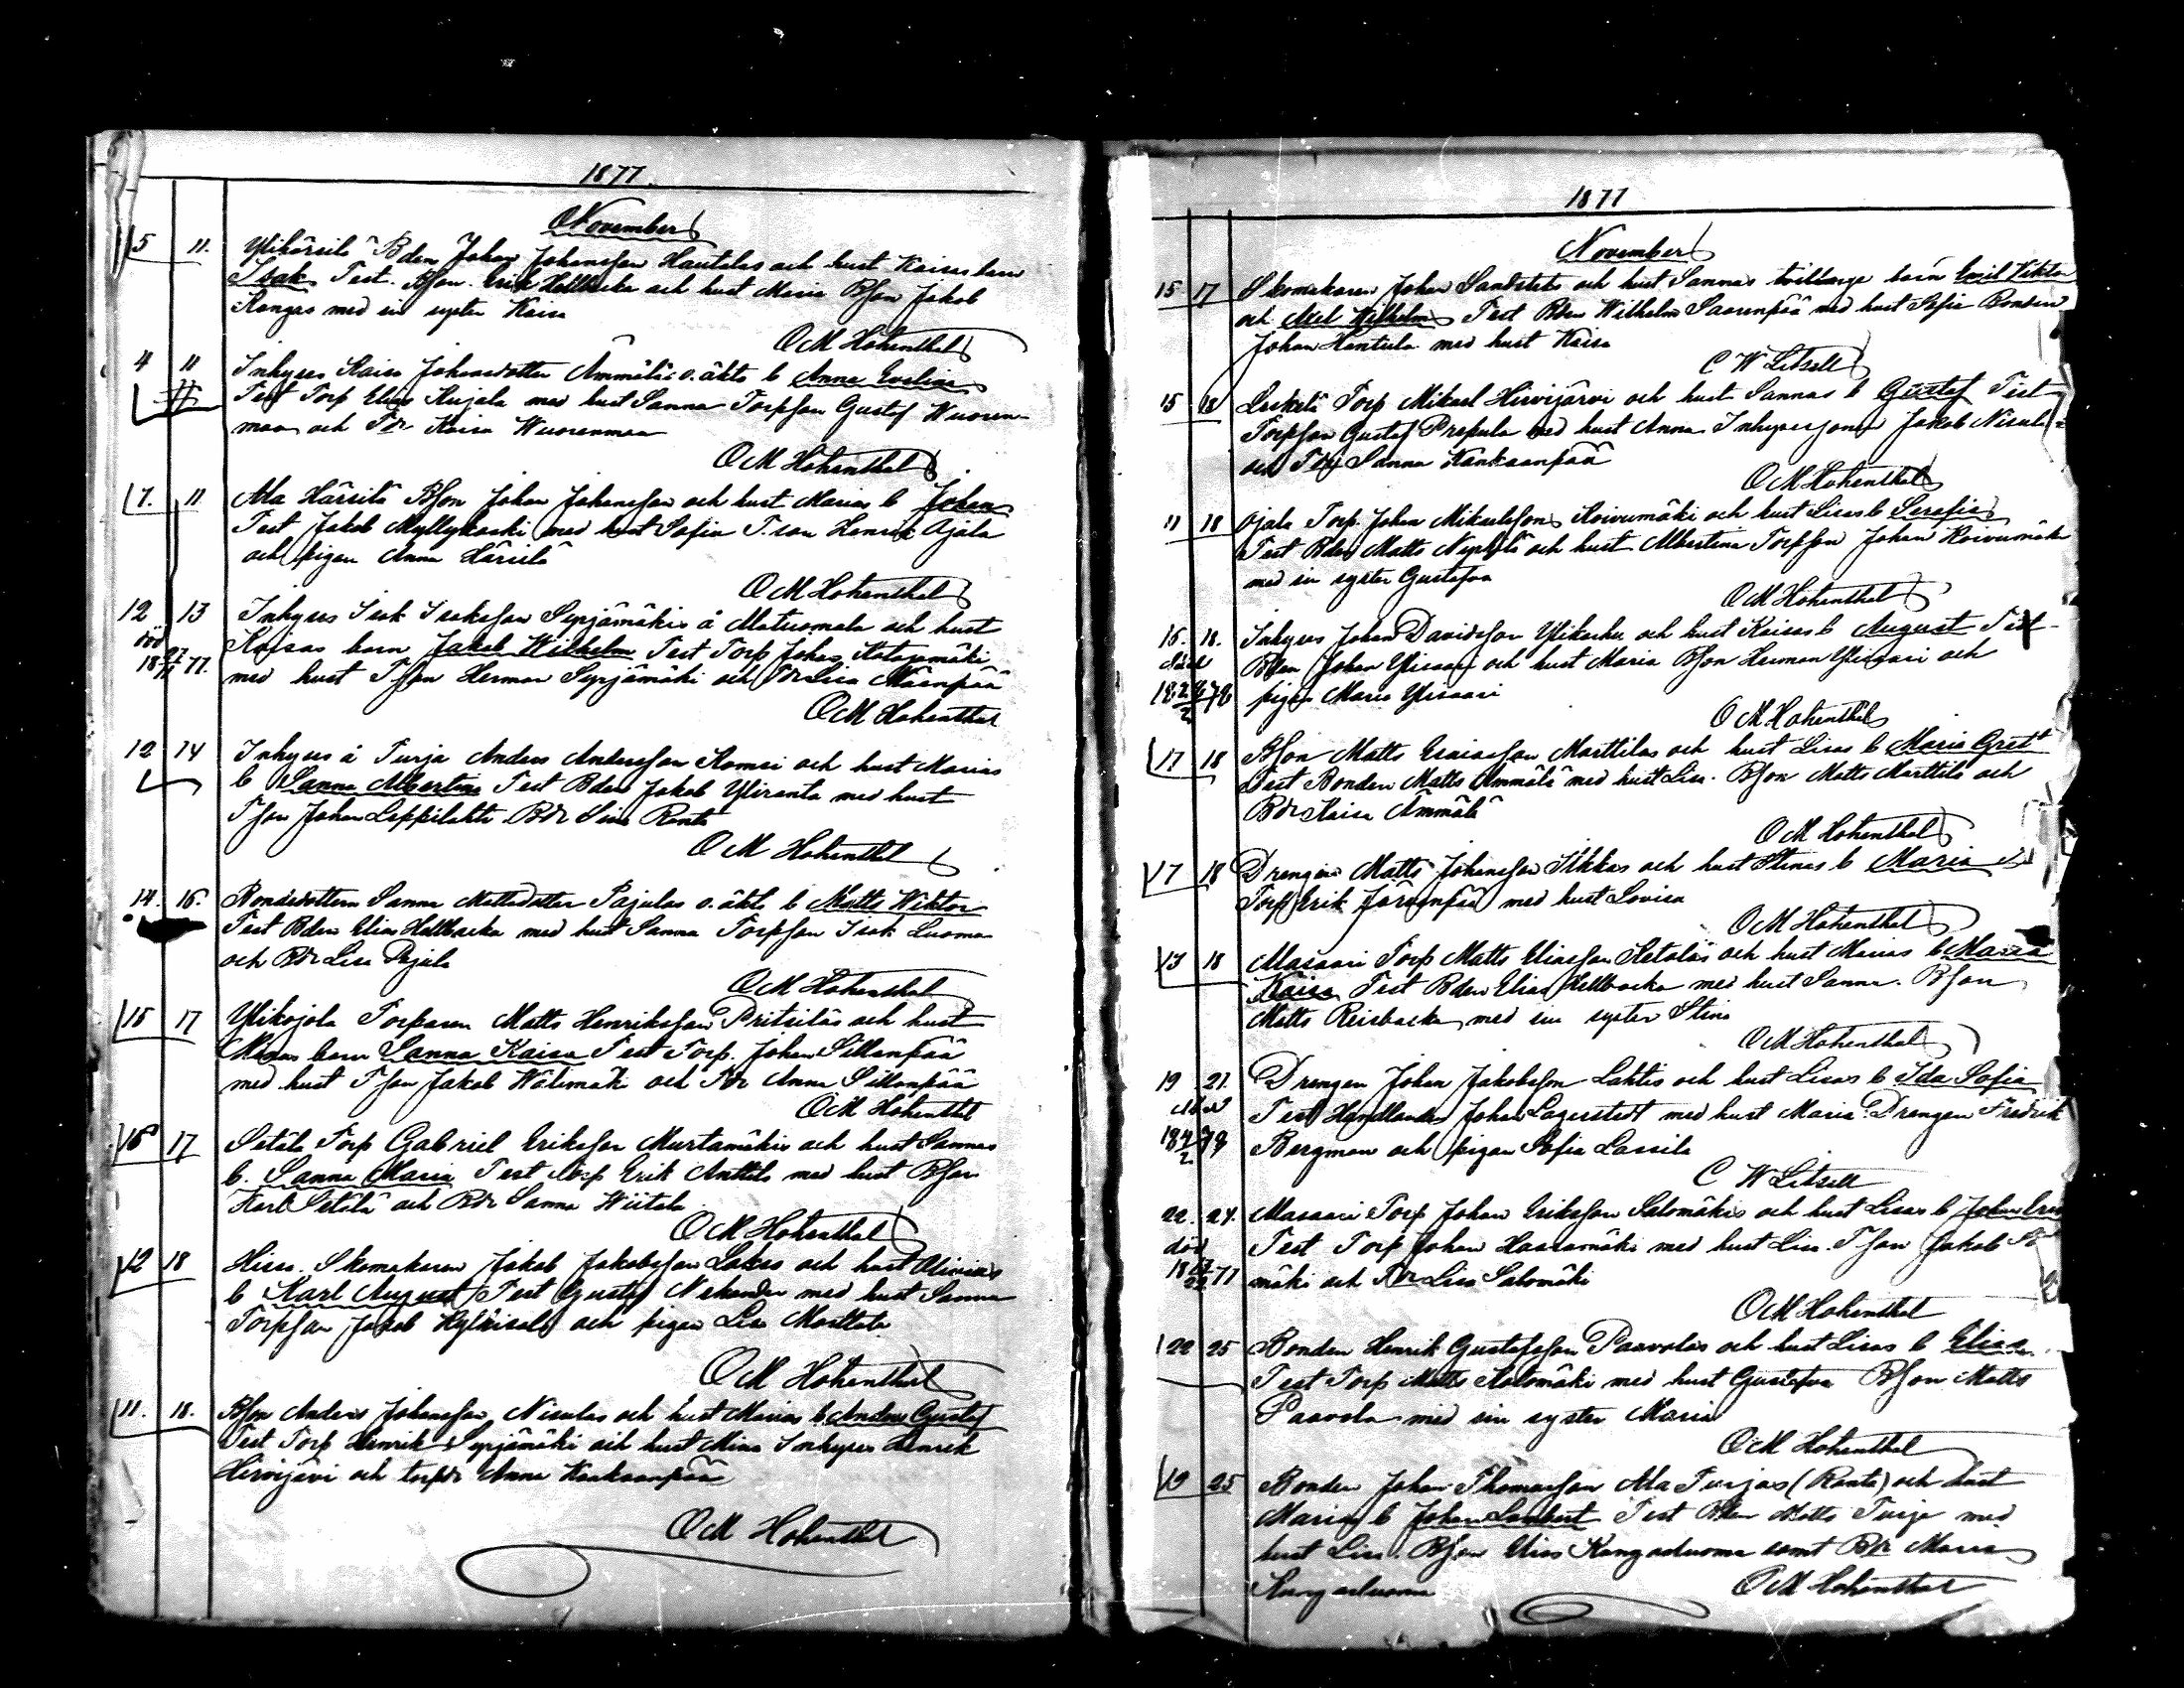 1877.
November
5 11. Ylihärsilä Bden Johan Johansson Hautalas och hust Kaisas barn
Isak Test. Bson Erik Hellbacka och hust Maria Bson Jakob
Kangas med sin syster Kaisa
O M Hohenthal
4 11 Inhyses Kaisa Johansdotter Ämmäläs o. äkta b Anna Evelina
Test Torp Elias Kujala med hust Sanna Torpson Gustaf Wuoren-
maa och Tdr Kaisa Wuorenmaa
O M Hohenthal
7. 11 Ala Härsilä Bson Johan Johansson och hust Marias b Johan
Test Jakob Myllykoski med hust Sofia T. son Henrik Ojala
och pigan Anna Härsilä
O M Hohenthal
12 13 Inhyses Isak Isaksson Syrjämäkis å Matuomala och hust
död Kaisas barn Jakob Wilhelm Test Torp Johan
18 77. med hust Tson Herman Syrjämäki och Tdr Lisa Mäenpää
O M Hohenthal
12 14 Inhyses å Turja Anders Andersson Komsi och hust Marias
b Sanna Albertina Test Bden Jakob Yliranta med hust
Tson Johan Leppilahti Bdr Lisa Ranta
O M Hohenthal
14. 16. Bondedottern Sanna Mattsdotter Pajulas o. äkta b Matts Wiktor
Test Bden Elias Hellbacka med hust Sanna Torpson Isak Luoma
och Bdr Lisa Pajula
O M Hohenthal
15 17 Ylikojola Torparen Matts Henriksson Pritsiläs och hust
barn Sanna Kaisa Test Torp. Johan Sillanpää
med hust Tson Jakob Wälimäki och Tdr Anna Sillanpää
O M Hohenthal
16 17 Setälä Torp Gabriel Eriksson Murtamäkis och hust Sannas
b. Sanna Maria Test Torp Erik Anttila med hust Bson
Karl Setälä och Bdr Sanna Wiitala
O M Hohenthal
12 18 Hissa. Skomakaren Jakob Jakobsson Lakas och hust
b Karl August Test Gustaf Neskander med hust Sanna
Torpson Jakob och pigan Lisa Marttala
O M Hohenthal
11. 18. Bson Anders Johansson Nisulas och hust Marias b. Anders Gustaf
Test Torp Henrik Syrjämäki och hust Mina Inhyses Henrik
Hirvijärvi och torpdr Anna Kankaanpää
O M Hohenthal
1877
November
15 17 Skomakaren Johan Sandstedts och hust Sannas tvillinge barn Emil Viktor
och Axel Wilhelm Test Bden Wilhelm Saarenpää med hust Sofia Bonden
Johan Hantula med hust Kaisa
C W Litzell
15 18 Torp Mikael Hirvijärvi och hust Sannas b Gustaf Test
Torpson Gustaf Prepula med hust Anna Inhysesson Jakob Nisula
och Tdr Sanna Kankaanpää
O M Hohenthal
11 18 Ojala Torp. Johan Mikaelsson Koivumäki och hust Lisas b Serafia
Test Bden Matts och hust Albertina Torpson Johan Koivumäki
med sin syster Gustafva
O M Hohenthal
16. 18. Inhyses Johan Davidsson Ylikarhu och hust Kaisas b August Test
Död Bden Johan Ylisaari och hust Maria Bson Herman Ylisaari och
18 78 pigan Maria Ylisaari
O M Hohenthal
17 18 Bson Matts Marttilas och hust Lisas b Maria Gret
Test Bonden Matts Ämmälä med hust Lisa. Bson Matts Marttila och
Bdr Kaisa Ämmälä
O M Hohenthal
17 18 Drengen Matts Johansson Ilkkas och hust Stinas b Maria
Torp Erik Järvenpää med hust Lovisa
O M Hohenthal
13 18 Masaari Torp Matts Eliasson Ketoläs och hust Marias b Maria
Kaisa Test Bden Elias Hellbacka med hust Sanna. Bson
Matts Reisbacka med sin syster Stina
O M Hohenthal
19 21. Drengen Johan Jakobsson Lahtis och hust Lisas b Ida Sofia
död Test Handlanden Johan Lagerstedt med hust Maria Drengen Fredrik
18 78 Bergman och pigan Sofia Lassila
C W Litzell
22. 24. Masaari Torp Johan Eriksson Salomäkis och hust Lisas b Johan Eri
död Test Torp Johan Haasamäki med hust Lisa. Tson Jakob
18 77 mäki och Tdr Lisa Salomäki
O M Hohenthal
22 25 Bonden Henrik Gustafsson Paavolas och hust Lisas b Elias.
Test Torp Matts Kalomäki med hust Gustafva Bson Matts
Paavola med sin syster Maria
O M Hohenthal
19 25 Bonden Johan Thomasson Ala Turjas (Ranta) och hust
Marias b Johan Lambert Test Bden Matts Turja med
hust Lisa. Bson Elias Kangasluoma samt Bdr Maria
Kangasluoma O M Hohenthal